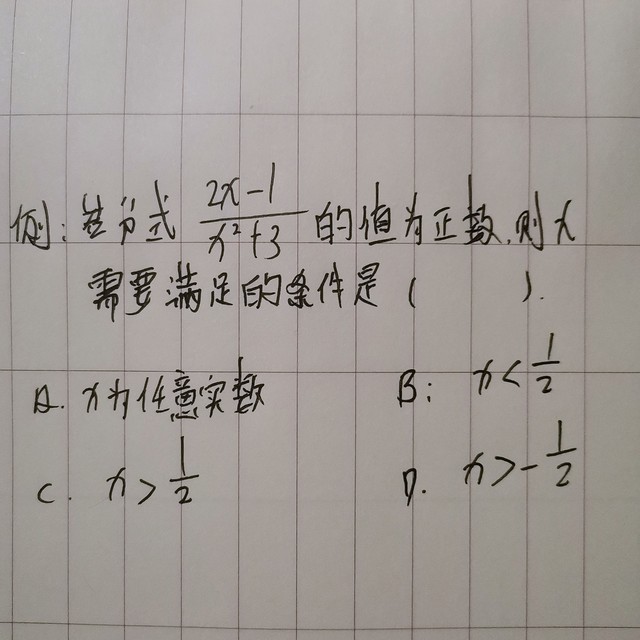 例:若分式 \frac{2x-1}{x²+3} 的值为正数,则x
需要满足的条件是( ).
A. x为任意实数 B: x<\frac{1}{2}
C. x>\frac{1}{2} D. x>-\frac{1}{2}